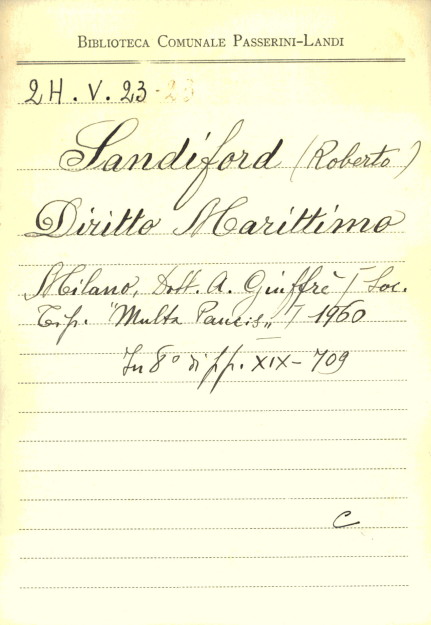 BIBLIOTECA COMUNALE PASSERINI-LANDI
2H. V. 23-23
Sandiford (Roberto)
Diritto Marittimo
Milano, Dott. A. Giuffrè / Soc.
Tip. "Multa Paucis" / 1960
In 8° di pp. XIX-709
C